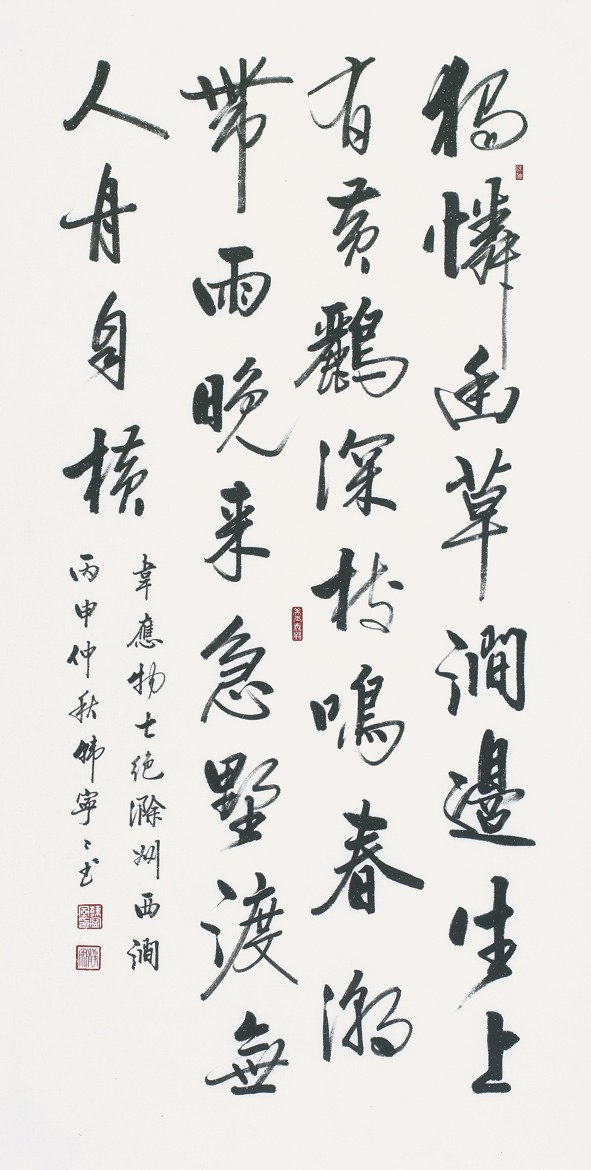 獨憐幽草澗邊生上
有黄鸝深樹鳴春潮
帶雨晚来急墅渡無
人舟自横
韋應物七绝滁州西澗
丙申仲秋韩寧〻书